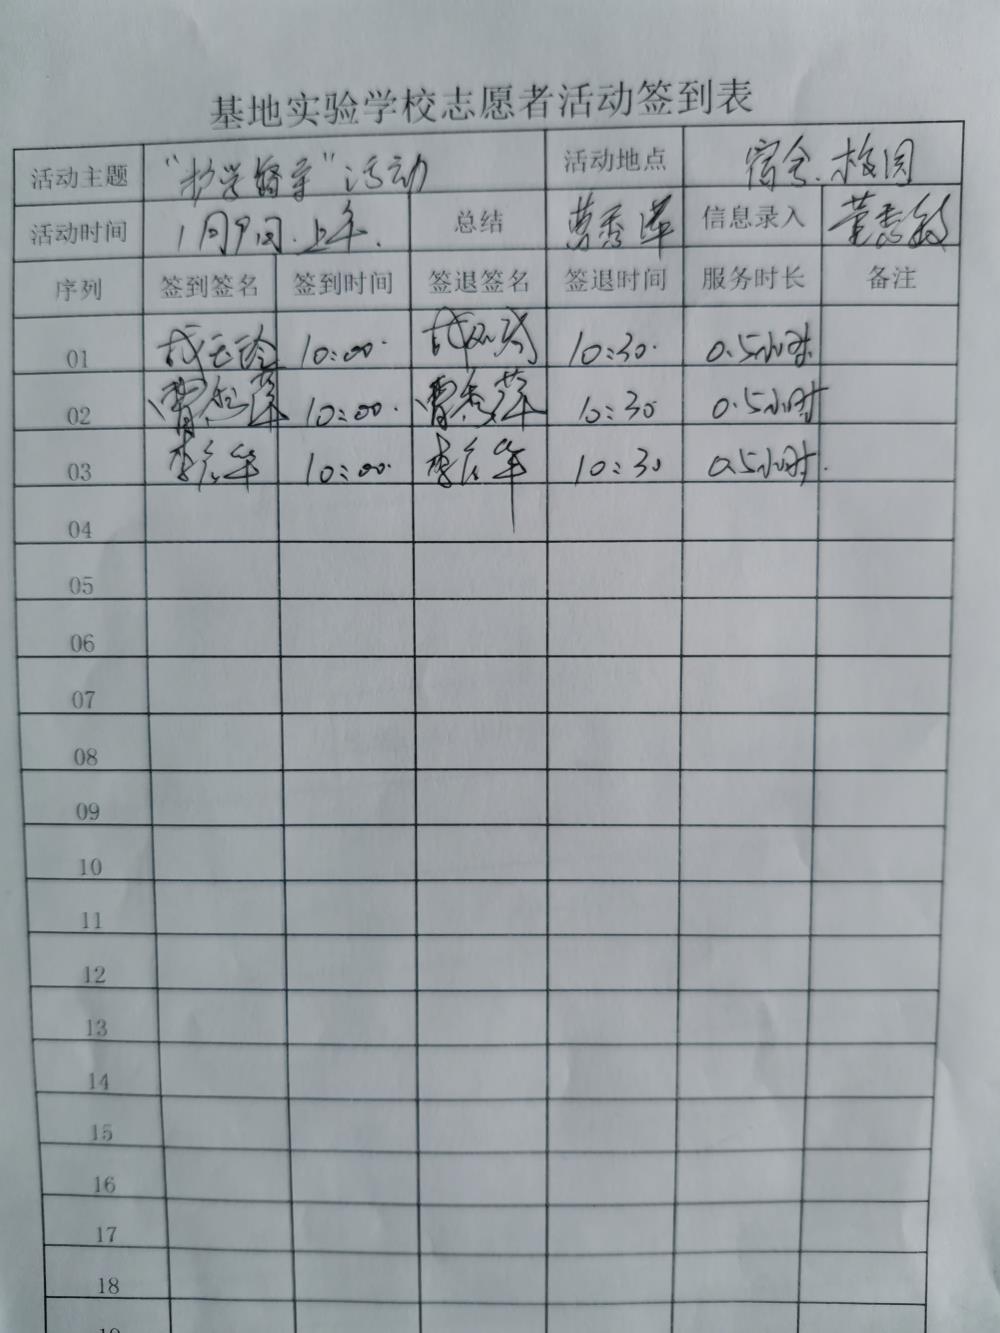 基地实验学校志愿者活动签到表
活动主题 "护学督导"活动 活动地点 宿舍、校园
活动时间 1月9日.上午. 总结 曹秀萍 信息录入
序列 签到签名 签到时间 签退签名 签退时间 服务时长 备注
01 10:00 10:30 0.5小时
02 曹秀萍 10:00 曹秀萍 10:30 0.5小时
03 10:00 10:30 0.5小时
04
05
06
07
08
09
10
11
12
13
14
15
16
17
18
19